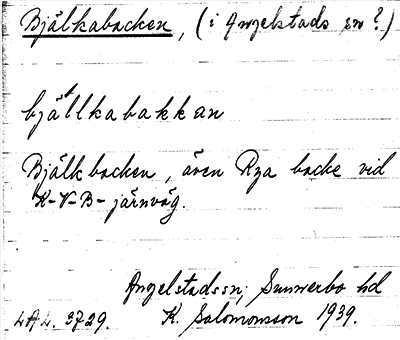 Bjälkabacken, (i Angelstads sn?)
bjällkabakkan
Bjälkbacken, även Rya backe vid
K-V-B-järnväg.
Angelstadssn; Sunnerbo hd
LAL. 3729. K. Salomonsson 1939.